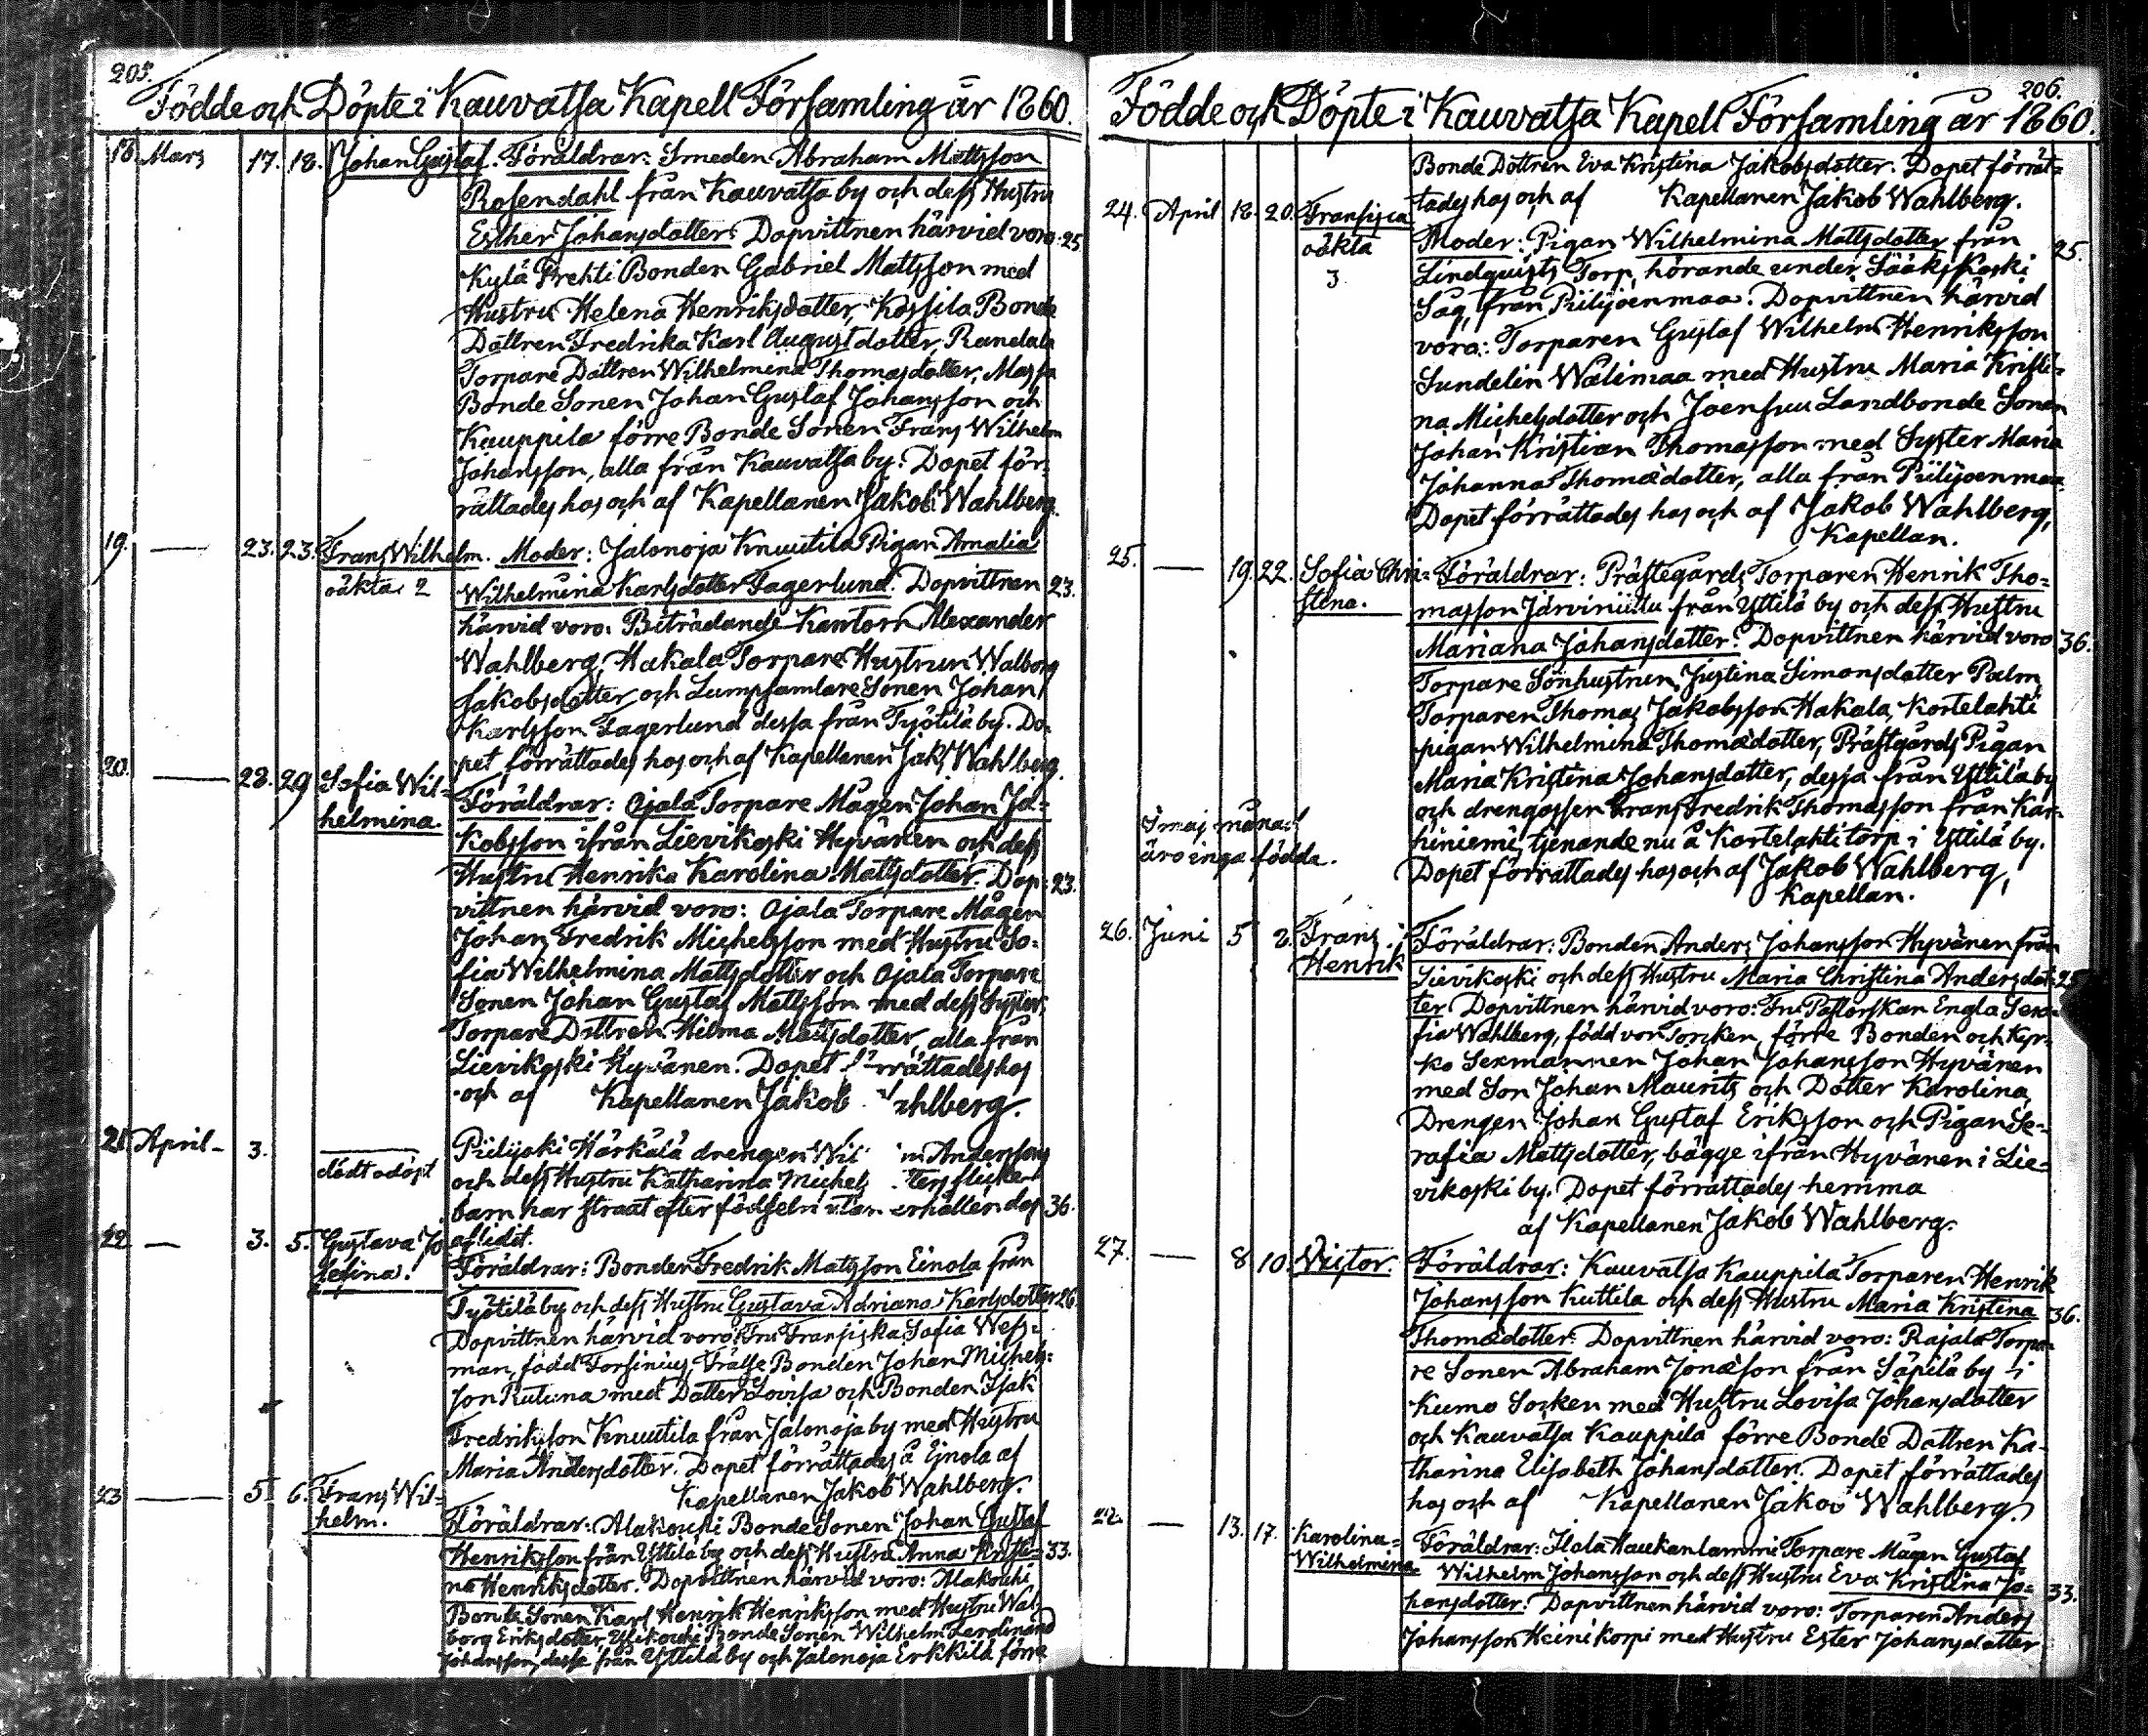 205.
Födde och Döpte i Kauvatsa Kapell Församling år 1860.
18. Mars 17. 18. Johan Gustaf. Föräldrar: Smeden Abraham Mattsson
Rosendahl från Kauvatsa by och dess Hustru
Esther Johansdotter. Dopvittnen härvid voro: 25
Kylä Prehti Bonden Gabriel Mattsson med
Hustru Helena Henriksdotter, Kossila Bonde
Dottren Fredrika Karl Augustdotter, Randala
Torpare Dottren Wilhelmina Thomasdotter, Massa
Bonde Sonen Johan Gustaf Johansson och
Kauppila förre Bonde Sonen Frans Wilhelm
Johansson, alla från Kauvatsa by. Dopet för-
rättades hos och af Kapellanen Jakob Wahlberg.
19. — 23. 23. Frans Wilhelm. Moder: Jalonoja Knuutila Pigan Amalia
oäkta 2 Wilhelmina Karlsdotter Fagerlund. Dopvittnen 23.
härvid voro: Biträdande Kantorn Alexander
Wahlberg, Hakala Torpare Hustrun Walborg
Jakobsdotter och Lumpsamlare Sonen Johan
Karlsson Fagerlund dessa från Työtilä by. Do-
pet förrättades hos och af Kapellanen Jak. Wahlberg.
20. — 28. 29 Sofia Wil-
helmina. Föräldrar: Ojala Torpare Mågen Johan Ja-
kobsson ifrån Lievikoski Hyvänen och dess
Hustru Henrika Karolina Mattsdotter. Dop- 23.
vittnen härvid voro: Ojala Torpare Mågen
Johan Fredrik Michelsson med Hustru So-
fia Wilhelmina Mattsdotter och Ojala Torpare
Sonen Johan Gustaf Mattsson med dess Syster,
Torpare Dottren Hilma Mattsdotter, alla från
Lievikoski Hyvänen. Dopet förrättades hos
och af Kapellanen Jakob Wahlberg.
21. April — 3. dödt odöpt Piilijoki Härkälä drengen Wil m Anderssons
och dess Hustru Katharina Michels ters flicke-
barn har straxt efter födseln utan erhållen dop 36.
aflidit.
22 — 3. 5. Gustava Jo-
sefina. Föräldrar: Bonden Fredrik Matsson Einola från
Työtilä by och dess Hustru Gustava Adriana Karlsdotter 26.
Dopvittnen härvid voro: Fru Fransiska Sofia Wess-
man, född Forsinius, Frälse Bonden Johan Michels-
son Rutuna med Dotter Lovisa och Bonden Isak
Fredriksson Knuutila från Jalonoja by med Hustru
Maria Andersdotter. Dopet förrättades å Einola af
Kapellanen Jakob Wahlberg.
23 — 5. 6. Frans Wil-
helm. Föräldrar: Alakouhi Bonde Sonen Johan Gustaf
Henriksson från Yttilä by och dess Hustru Anna Kristi- 33.
na Henriksdotter. Dopvittnen härvid voro: Alakouhi
Bonde Sonen Karl Henrik Henriksson med Hustru Wal-
borg Eriksdotter, Ylikouhi Bonde Sonen Wilhelm Ferdinand
Johansson, dessa från Yttilä by och Jalonoja Erkkilä förre
206.
Födde och Döpte i Kauvatsa Kapell Församling år 1860.
Bonde Dottren Eva Kristina Jakobsdotter. Dopet förrät-
tades hos och af Kapellanen Jakob Wahlberg.
24. April 18. 20. Fransisca
oäkta
3. Moder: Pigan Wilhelmina Mattsdotter från 25.
Lindquists Torp, hörande under Sääkskoski
Såg, från Piilijoenmaa. Dopvittnen härvid
voro: Torparen Gustaf Wilhelm Henriksson
Sundelin Wälimaa med Hustru Maria Kristi-
na Michelsdotter och Joensuu Landbonde Sonen
Johan Kristian Thomasson med Syster Maria
Johanna Thomædotter, alla från Piilijoenmaa.
Dopet förrättades hos och af Jakob Wahlberg,
Kapellan.
25. — 19. 22. Sofia Chri-
stena. Föräldrar: Prästegårds Torparen Henrik Tho-
masson Järviniittu från Yttilä by och dess Hustru
Mariana Johansdotter. Dopvittnen härvid voro: 36.
Torpare Sonhustrun Justina Simonsdotter Palm,
Torparen Thomas Jakobsson Hakala, Kortelahti
pigan Wilhelmina Thomædotter, Prästgårds Pigan
Maria Kristina Johansdotter, dessa från Yttilä by
och drengossen Frans Fredrik Thomasson från Kar-
hiniemi, tjenande nu å Kortelahti torp i Yttilä by.
Dopet förrättades hos och af Jakob Wahlberg,
Kapellan.
I maj månad
äro inga födda.
26. Juni 5 2. Frans
Henrik Föräldrar: Bonden Anders Johansson Hyvänen från
Lievikoski och dess Hustru Maria Christina Andersdot- 25
ter. Dopvittnen härvid voro: Fru Pastorskan Engla Sera-
fia Wahlberg, född von Torcken, förre Bonden och Kyr-
ko Sexmannen Johan Johansson Hyvänen
med Son Johan Maurits och Dotter Karolina,
Drengen Johan Gustaf Eriksson och Pigan Se-
rafia Mattsdotter, bägge ifrån Hyvänen i Lie-
vikoski by. Dopet förrättades hemma
af Kapellanen Jakob Wahlberg.
27. — 8 10. Victor. Föräldrar: Kauvatsa Kauppila Torparen Henrik
Johansson Kuttila och dess Hustru Maria Kristina 36.
Thomædotter. Dopvittnen härvid voro: Rajala Torpa-
re Sonen Abraham Jonæson från Säpilä by i
Kumo Socken med Hustru Lovisa Johansdotter
och Kauvatsa Kauppila förre Bonde Dottren Ka-
tharina Elisabeth Johansdotter. Dopet förrättades
hos och af Kapellanen Jakob Wahlberg.
— 13. 17. Karolina
Wilhelmina. Föräldrar: Ilola Haukanlammi Torpare Mågen Gustaf
Wilhelm Johansson och dess Hustru Eva Kristina Jo- 33.
hansdotter. Dopvittnen härvid voro: Torparen Anders
Johansson Heinikorpi med Hustru Ester Johansdotter